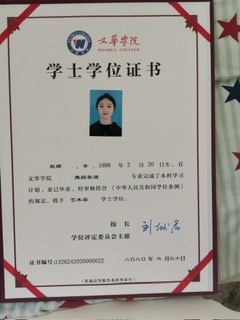 文华学院
WENHUA COLLEGE
学士学位证书
，女，1998 年 2 月 20 日生。在
文华学院 舞蹈表演 专业完成了本科学习
计划，业已毕业，经审核符合《中华人民共和国学位条例》
的规定，授予 艺术学 学士学位。
校 长
学位评定委员会主席
证书编号:
二〇二〇年 六 月二十日
（普通高等教育本科毕业生）